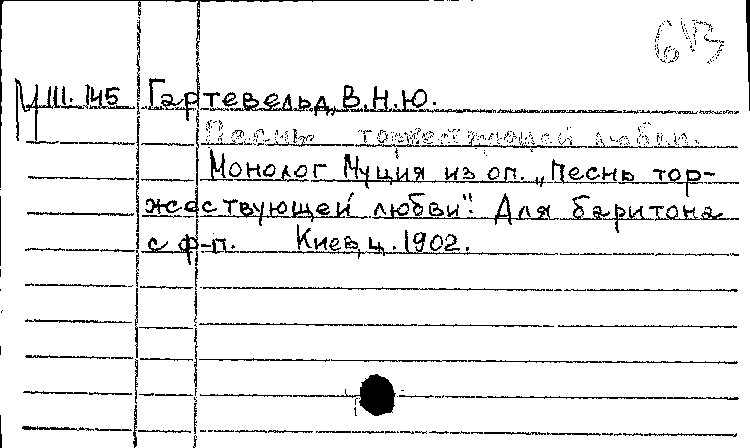 6В
III. 145 Гартевельд, В.Н.Ю.
Песнь торжествующей любви.
Монолог Муция из оп. „Песнь тор-
жествующей любви". Для баритона
с ф-п. Киев, ц. 1902.